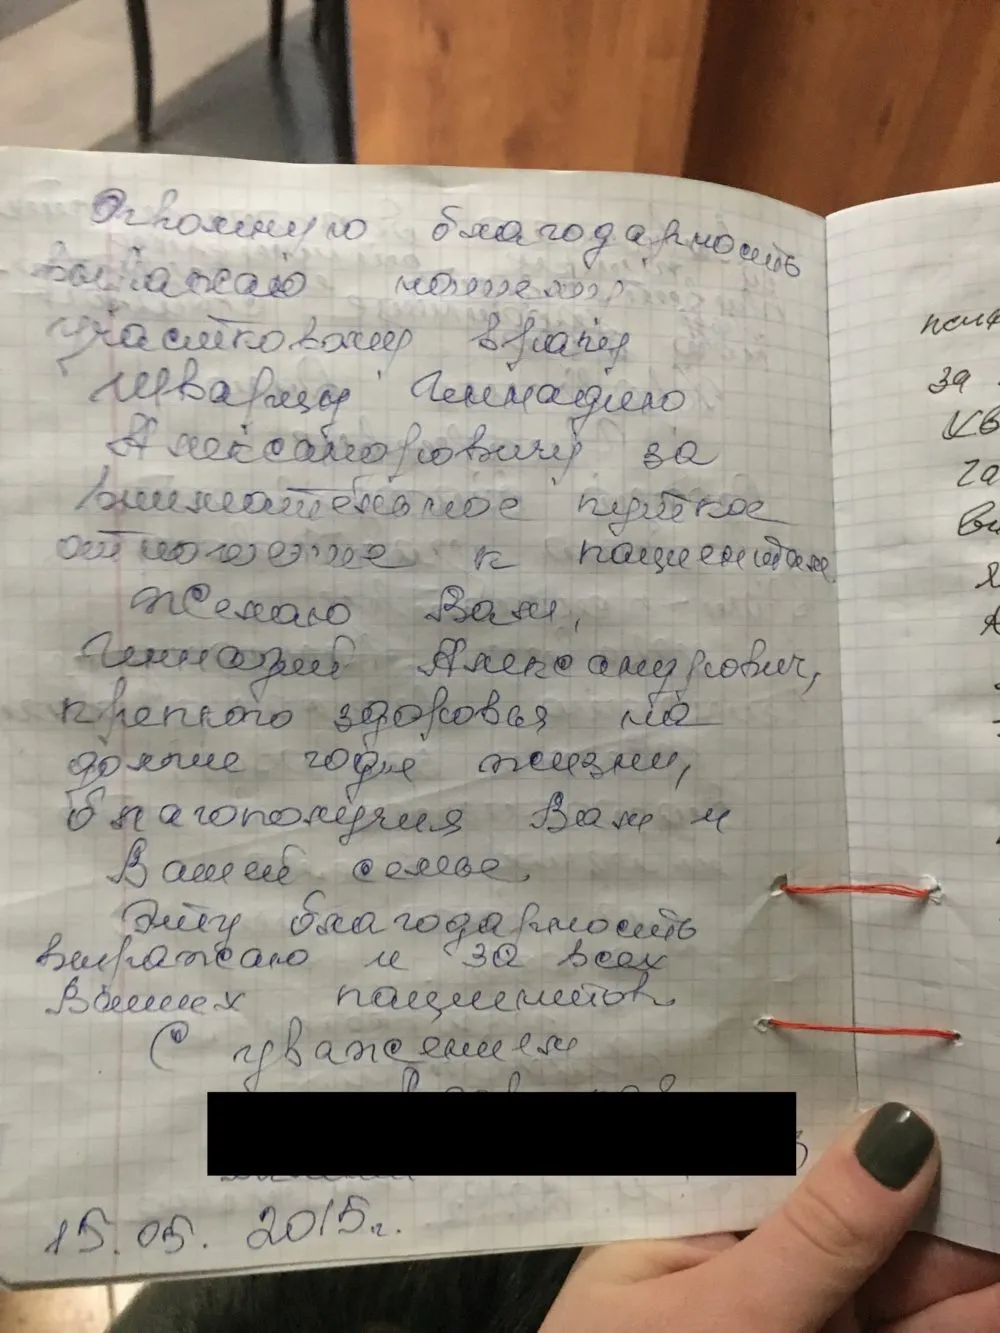 Огромную благодарность
выражаю нашему
участковому врачу
Шварцу Геннадию
Александровичу за
внимательное чуткое
отношение к пациентам.
Желаю Вам,
Геннадий Александрович,
крепкого здоровья на
долгие годы жизни,
благополучия Вам и
Вашей семье.
Эту благодарность
выражаю и за всех
Ваших пациентов.
С уважением
15.05.2015г.
за